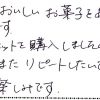 おいしい お菓子を
す。
ットで購入しましたが
また リピートしたいで
楽しみです。